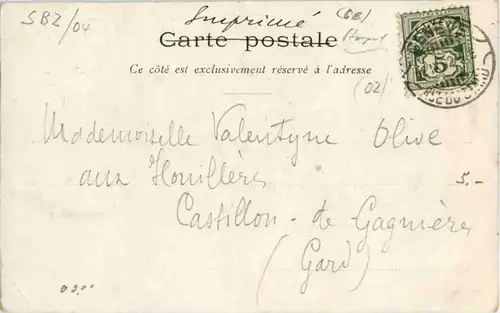 SBZ/04
Imprimé
Carte postale
Ce côté est exclusivement réservé à l'adresse
(02)
5
Mademoiselle Valentyne Olive
aux Houillères
5.-
Castillon-de Gagnières
(Gard)